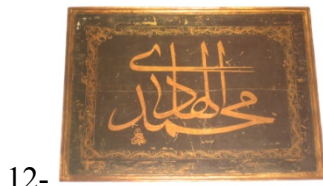 محمد الهادى
12-